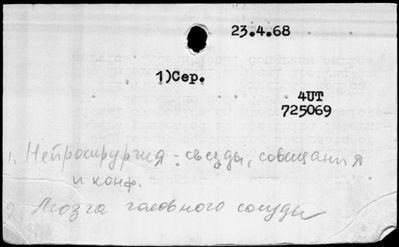 23.4.68
1)Сер.
4UT
725069
1. Нейрохирургия - съезды, совещания
и конф.
2. Мозга головного сосуды